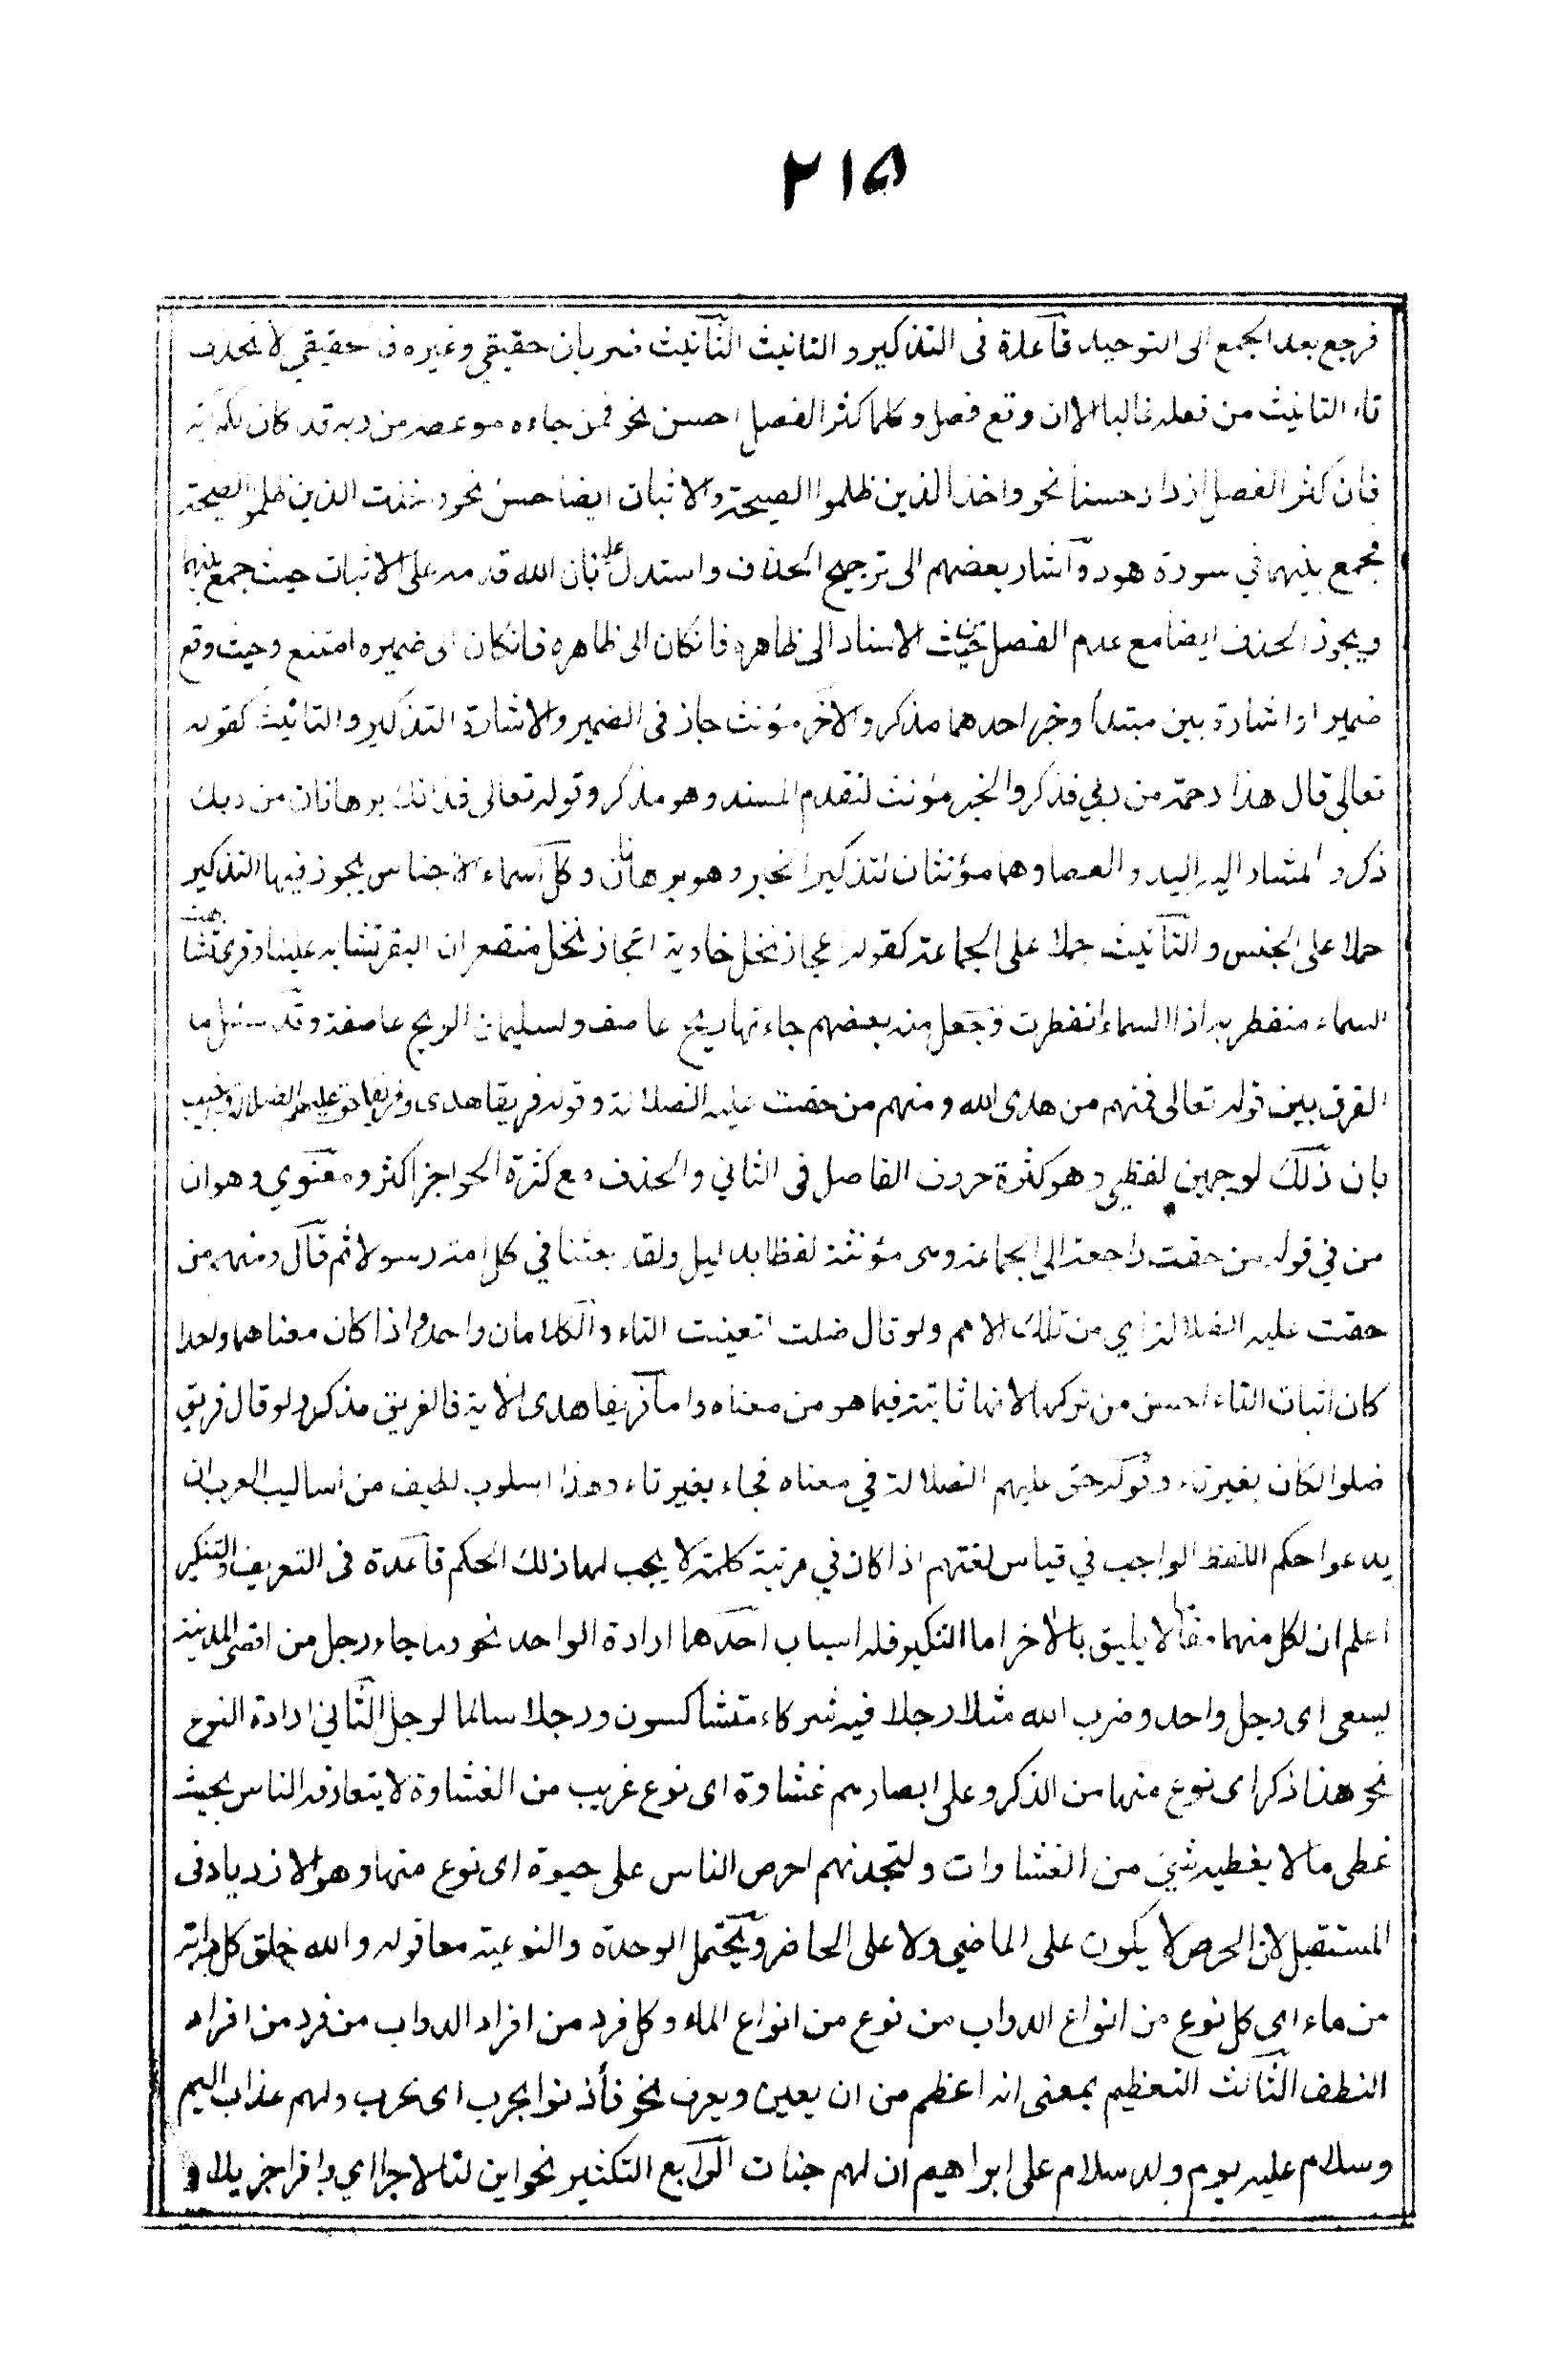 ۲۱۵
فرجع بعد الجمع الى التوحيد قاعدة فى التذكير و التانيث التأنيث ضربان حقيقي وغيره فا حقيقي لا تحذف
تاء التانيث من فعله غالبا الا ان وقع فصل و كلما كثر الفصل احسن نحو فمن جاءه موعظه من ربه قد كان لكم آية
فان كثر الفصل ازداد حسنا نحو واخذ الذين ظلموا الصيحة والاثبات ايضا حسن نحو واخذت الذين ظلموا الصيحة
فجمع بينهما في سورة هود وآشار بعضهم الى ترجيح الحذف واستدل عليه بان الله قدمه على الاثبات حيث جمع بينهما
ويجوز الحذف ايضا مع عدم الفصل حيث الاسناد الى ظاهره فانكان الى ظاهره فانكان الى ضميره امتنع وحيث وقع
ضمير او اشارة بين مبتدأ وخبر احدهما مذكر والاخر مؤنث جاز فى الضمير والاشارة التذكير والتانيث كقوله
تعالى قال هذا رحمة من ربي فذكر والخبر مؤنث لتقدم المسند وهو مذكر وقوله تعالى فذانك برهانان من ربك
ذكر والمشار اليه اليد والعصا وهما مؤنثان لتذكير الخبر وهو برهانان وكل اسماء الاجناس يجوز فيها التذكير
حملا على الجنس و التأنيث حملا على الجماعة كقوله عجاز نخل خاوية اعجاز نخل منقعر ان البقر تشابه علينا وقرئ تشابهت
السماء منفطر به اذا السماء انفطرت وجعل منه بعضهم جاءتها ريح عاصف ولسليمان الريح عاصفة وقد سئل ما
الفرق بين قوله تعالى فمنهم من هدى الله ومنهم من حقت عليه الضلالة وقوله فريقا هدى وفريقا حق عليهم الضلالة واجيب
بان ذلك لوجهين لفظي وهو كثرة حروف الفاصل فى الثاني والحذف مع كثرة الحواجز اكثر ومعنوي وهو ان
من في قوله من حقت راجعة الى الجماعة وهى مؤنثة لفظا بدليل ولقد بعثنا في كل امة رسولا ثم قال ومنهم من
حقت عليه الضلالة اي من تلك الامم ولو قال ضلت لتعينت التاء والكلامان واحد واذا كان معناهما واحدا
كان اثبات التاء احسن من تركها لانها ثابتة فيما هو من معناه واما فريقا هدى الاية فالفريق مذكر ولو قال فريق
ضلوا لكان بغير تاء وقوله حق عليهم الضلالة في معناه فجاء بغير تاء وهذا اسلوب لطيف من اساليب العرب ان
يدعوا حكم اللفظ الواجب في قياس لغتهم اذا كان في مرتبة كلمة لا يجب لها ذلك الحكم قاعدة فى التعريف والتنكير
اعلم ان لكل منهما مقاما لا يليق بالاخر اما التنكير فله اسباب احدها ارادة الواحد نحو وجاء رجل من اقصى المدينة
يسعى اى رجل واحد وضرب الله مثلا رجلا فيه شركاء متشاكسون ورجلا سالما لرجل الثاني ارادة النوع
نحو هذا ذكر اى نوع منها من الذكر وعلى ابصارهم غشاوة اى نوع غريب من الغشاوة لا يتعارفه الناس بحيث
غطى ما لا يغطيه شئ من الغشاوات ولتجدنهم احرص الناس على حيوة اى نوع منها وهو الازدياد فى
المستقبل لان الحرص لا يكون على الماضي ولا على الحاضر ويحتمل الوحدة والنوعية معا قوله والله خلق كل دابة
من ماء اى كل نوع من انواع الدواب من نوع من انواع الماء وكل فرد من افراد الدواب من فرد من افراد
النطف الثالث التعظيم بمعنى انه اعظم من ان يعين ويعرف نحو فأذنوا بحرب اى بحرب ولهم عذاب اليم
وسلام عليه يوم ولد سلام على ابراهيم ان لهم جنات الرابع التكثير نحو اين لنا لاجرا اي وافرا جزيلا و